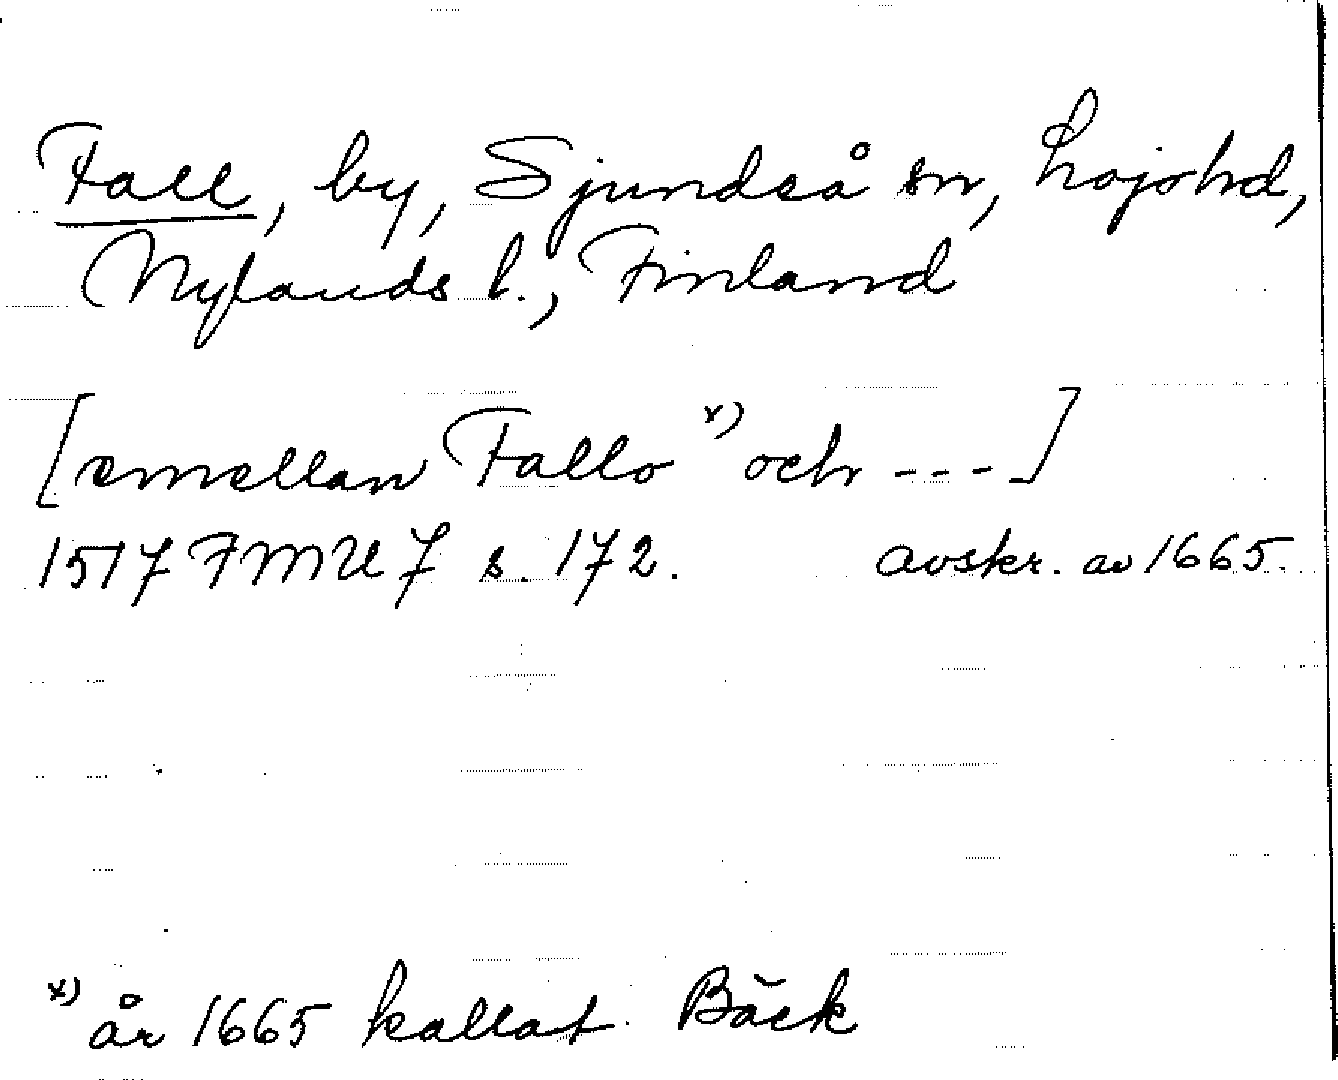 Fall, by, Sjundeå sn, Lojo hd,
Nylands l., Finland
[emellan Fallo x) och ---]
1517 FMU 7 s. 172. avskr. av 1665.
x) år 1665 kallat Bäck